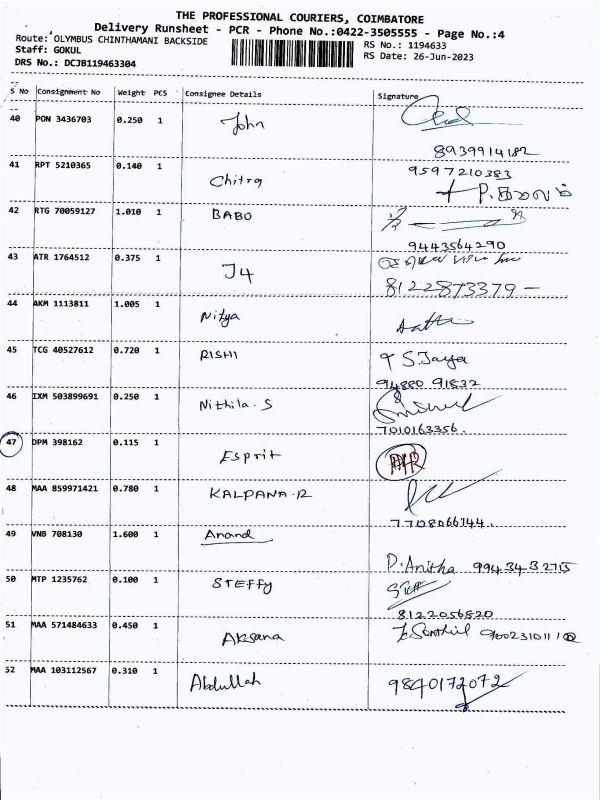 THE PROFESSIONAL COURIERS, COIMBATORE
Delivery Runsheet - PCR - Phone No.:0422-3505555 - Page No.:4
Route: OLYMBUS CHINTHAMANI BACKSIDE RS No.: 1194633
Staff: GOKUL RS Date: 26-Jun-2023
DRS No.: DCJB119463304
S No Consignment No Weight PCS Consignee Details Signature
40 PON 3436703 0.250 1 John
8939914182
41 RPT 5210365 0.140 1 Chitra 9597210383
P.
42 RTG 70059127 1.010 1 BABO
9443564290
43 ATR 1764512 0.375 1 J4
8122873379 -
44 AKM 1113811 1.005 1 Nitya
45 TCG 40527612 0.720 1 RISHI S.Jaya
94880 91832
46 IXM 503899691 0.250 1 Nithila.S
7010163356.
47 DPM 398162 0.115 1 Esprit
48 MAA 859971421 0.780 1 KALPANA.R
7708066144.
49 VNB 708130 1.600 1 Anand
P.Anitha 9943432715
50 MTP 1235762 0.100 1 STEFFY
8122056820
51 MAA 571484633 0.450 1 Aksana
52 MAA 103112567 0.310 1 Abdullah 9840172072